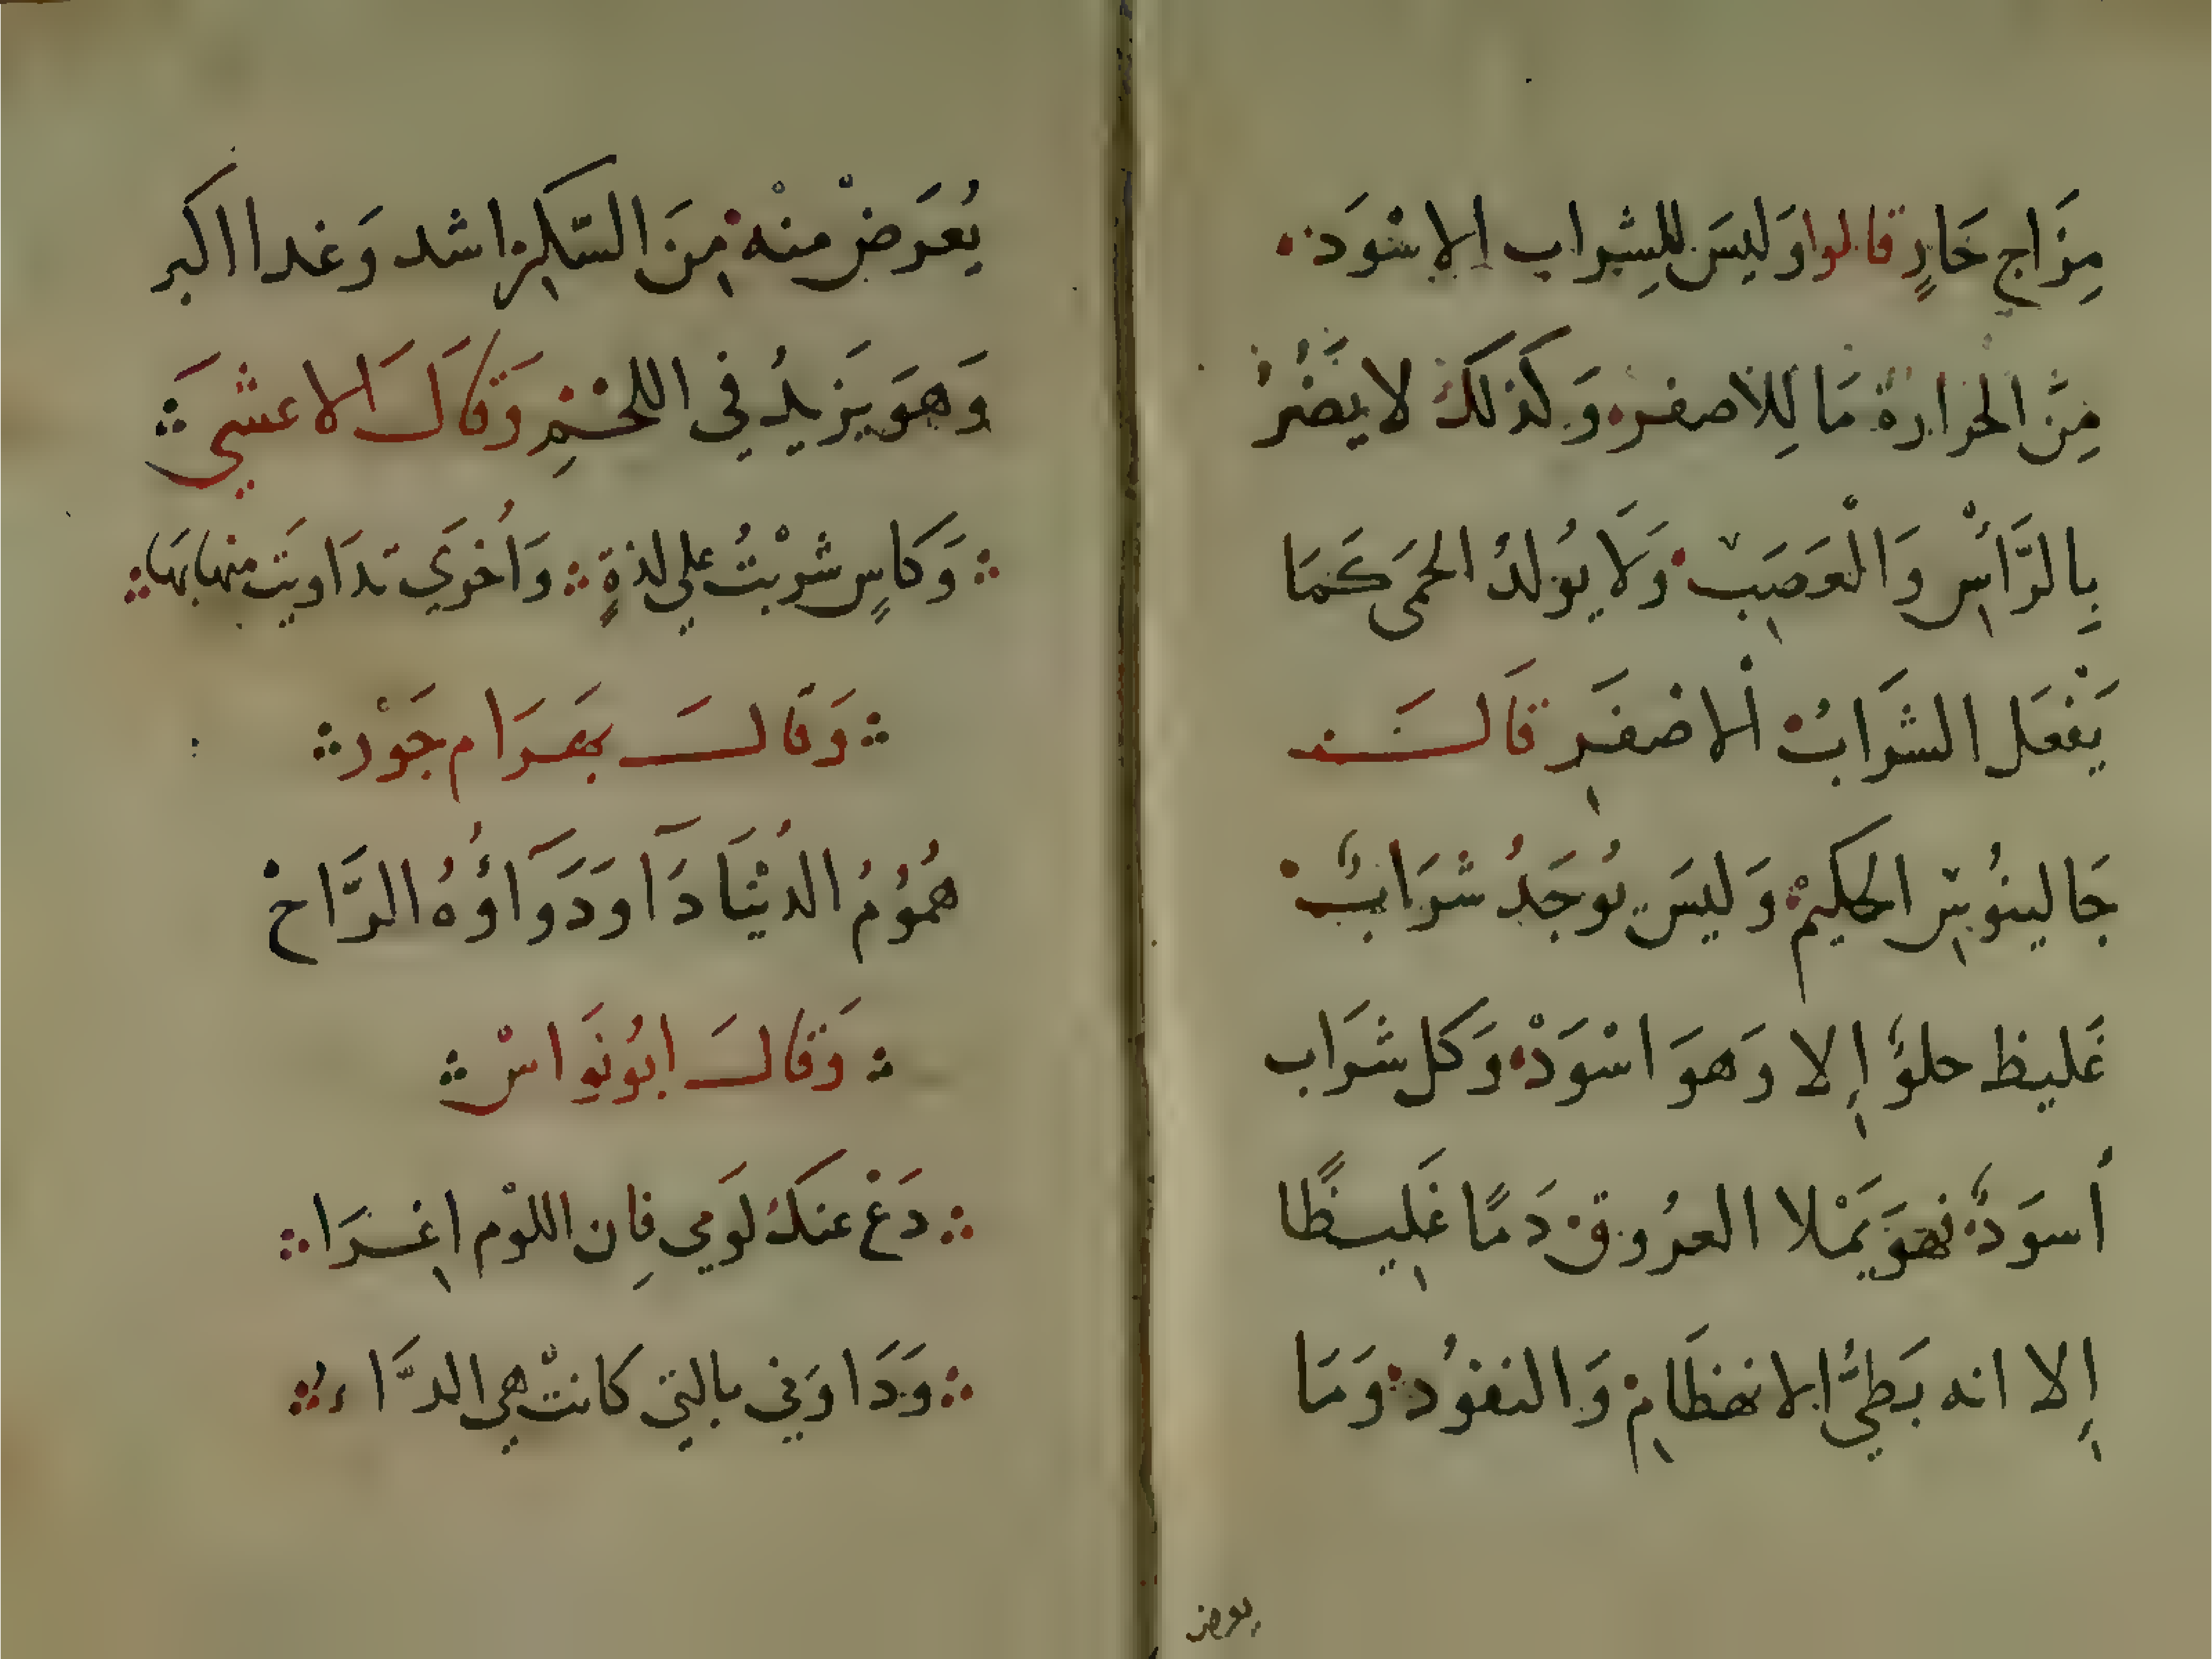 مِزَاجِ حَارٍ قالوا وَليسَ للِشراب الاسْوَد
مِنَ الحرارة مَا لِلأصفر وَكذلكَ لا يضُر
بِالرَّأسِ وَالْعَصَبِ وَلَا يُولدُ الحمَى كَمَا
يَفْعَل الشَرَابُ الاصفَرِ قَالَــــ
جَالينُوسِ الحكيمْ وَليسَ يُوجَدُ شرَابٌ
غَليظ حلوٌ إِلا وَهوَ اسْوَدْ وَكل شَرَاب
أسوَدٌ فهوَ يَمْلا العرُوق دَمًا غَلِيــظًا
إِلا انه بَطيُّ الانهظَامِ وَالنفوُد وَمَا
يعرض
يُعرَضْ منْه مِنَ السّكِر اشد وَغدا اكبر
وَهوَ يَزيدُ في اللحْـمِ وَقَالَ الاعشَي
وَكاسٍ شرْبتُ علي لذةٍ وَاُخرَي تدَاويَت منها بهَا
وَقَالَــ بهرَام جَوْر
هُموُمُ الدُنْيَا دَآ وَدَوَآؤُهُ الرَّاحْ
وَقَالَــ ابُو نوَاسْ
دَعْ عنكُ لَومي فاِن اللوْم اِغـرَا
وَدَاوَني بالتي كانتْ هي الدَّاءُ